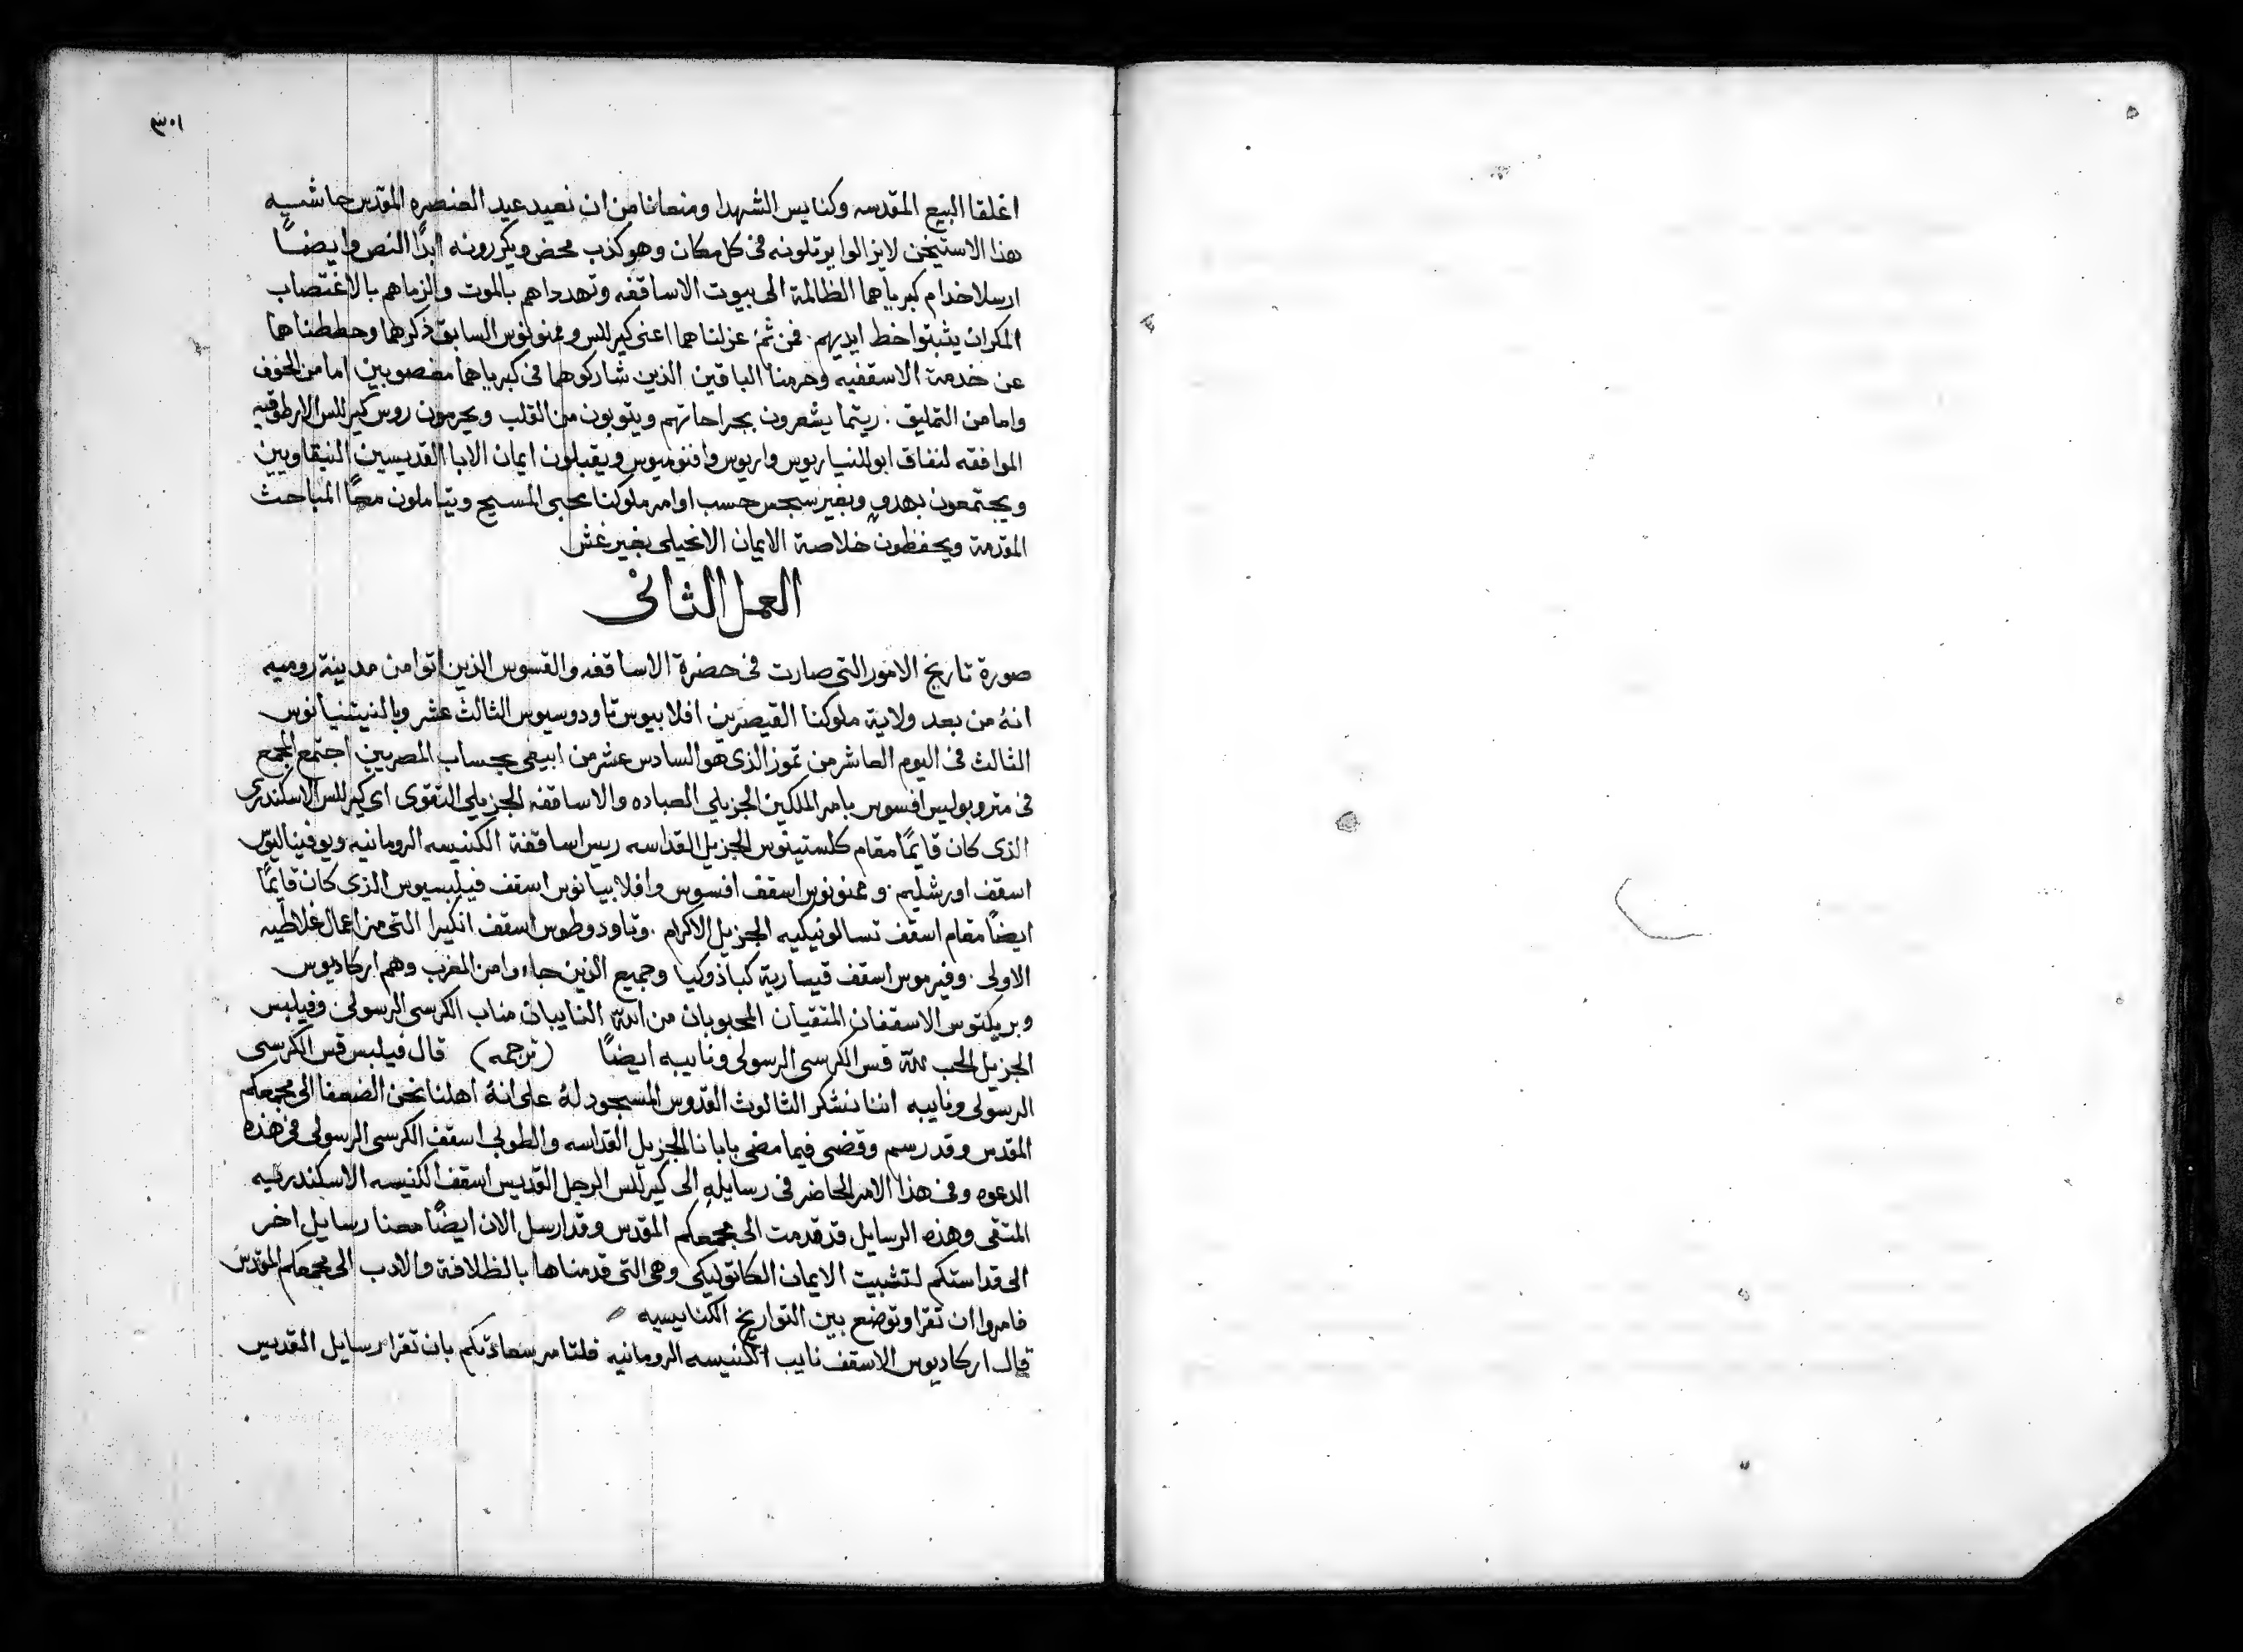 ٣٠١
اغلقا البيع المقدسه وكنايس الشهدا ومنعانا من ان نعيد عيد العنصره المقدس حاشيه
هذا الاستيخن لا يزالوا يرتلونه فى كل مكان وهو كذب محض ويكررونه ابدًا النص وايضًا
ارسلا خدام كبرياهما الظالمة الى بيوت الاساقفه وتهدداهم بالموت والزماهم بالاغتصاب
المكران يثبتوا خط ايديهم. فمن ثمّ عزلناهما اعنى كيرللس وممنونوس السابق ذكرهما وحططناهما
عن خدمة الاسقفيه وحرمنا الباقين الذين شاركوهما فى كبرياهما مغصوبين اما من الخوف
واما من التمليق. ريتما يشعرون بجراحاتهم ويتوبون من القلب ويحرمون روس كيرللس الارطوقيه
الموافقه لنفاق ابوللنياريوس واريوس وافنوميوس ويقبلون ايمان الابا القديسين النيقاويين
ويجتمعون بهدوٍ وبغير سجس حسب اوامر ملوكنا محبى المسيح ويتاملون معًا المباحث
المقدمة ويحفظون خلاصة الايمان الانجيلى بغير غش
العمل الثانى
صورة تاريخ الامور التى صارت فى حضرة الاساقفه والقسوس الذين اتوا من مدينة روميه
انهُ من بعد ولاية ملوكنا القيصرين افلابيوس تاودوسيوس الثالث عشر وبالنيتنيانوس
الثالث فى اليوم العاشر من تموز الذى هو السادس عشر من ابيفى بحساب المصريين اجتمع المجمع
فى متروبوليس افسوس بامر الملكين الجزيلي العباده والاساقفه الجزيلي التقوى اى كيرللس الاسكندرى
الذى كان قايمًا مقام كلستينوس الجزيل القداسه رييس اساقفة الكنيسه الرومانيه ويوفيناليوس
اسقف اورشليم. وممنونوس اسقف افسوس وافلابيانوس اسقف فيلبسيوس الذى كان قايمًا
ايضًا مقام اسقف تسالونيكيه الجزيل الاكرام. وتاودوطوس اسقف انكيرا التى من اعمال غلاطيه
الاولى. وفيرموس اسقف قيسارية كباذوكيا وجميع الذين جاءوا من المغرب وهم اركاديوس
وبريكتوس الاسقفان المتقيان المحبوبان من الله النايبان مناب الكرسى الرسولى وفيلبس
الجزيل الحب لله قس الكرسى الرسولى ونايبه ايضًا (ترجمه) قال فيلبس قس الكرسى
الرسولى ونايبه اننا نشكر الثالوث القدوس المسجود لهُ على انهُ اهلنا نحن الضعفا الى مجمعكم
المقدس وقد رسم وقضى فيما مضى بابانا الجزيل القداسه والطوبى اسقف الكرسى الرسولى فى هذه
الدعوه وفى هذا الامر الحاضر فى رسايلهِ الى كيرللس الرجل القديس اسقف الكنيسه الاسكندريه
المتقى وهذه الرسايل قد قدمت الى مجمعكم المقدس وقد ارسل الان ايضًا معنا رسايل اخر
الى قداستكم لتثبيت الايمان الكاتوليكى وهى التى قدمناها بالظلافة والادب الى مجمعكم المقدس
فامروا ان تقرا وتوضع بين التواريخ الكنايسيه
قال اركاديوس الاسقف نايب الكنيسه الرومانيه فلتامر سعادتكم بان تقرا رسايل القديس